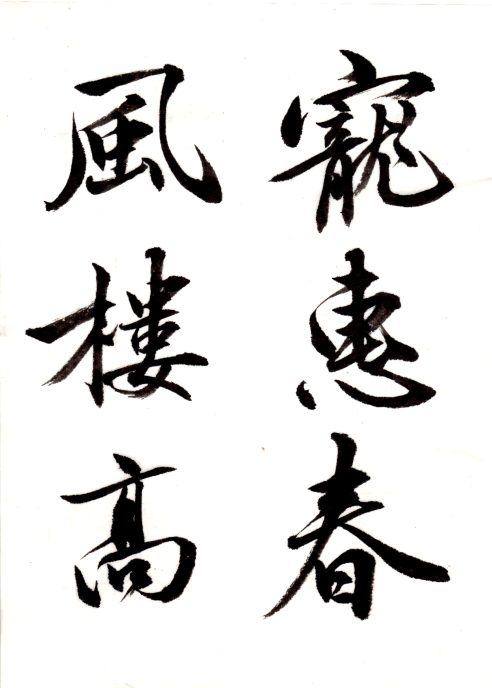 寵惠春
風樓高